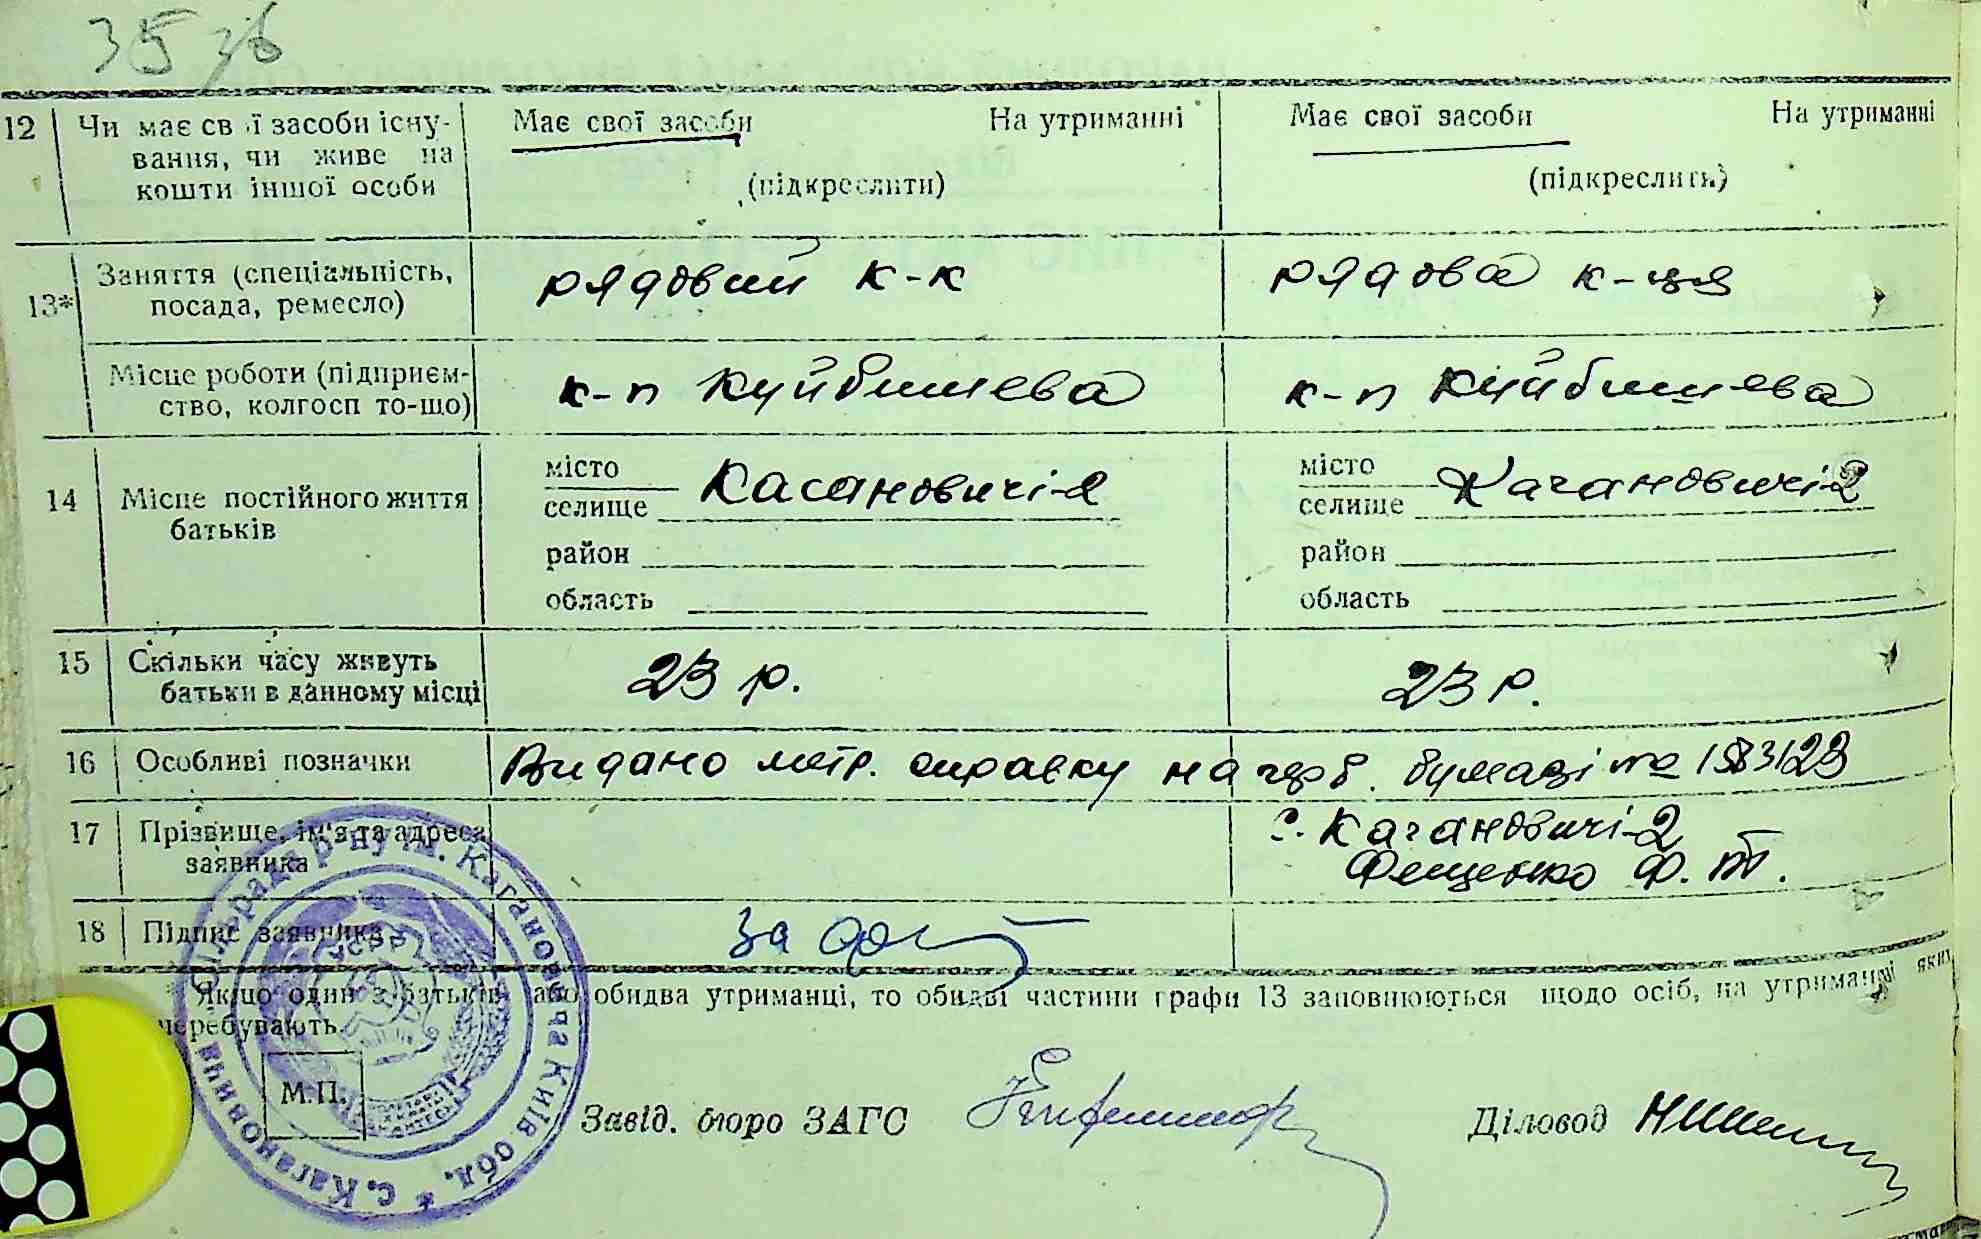 35 зв
12 Чи має свої засоби існу- Має свої засоби На утриманні Має свої засоби На утриманні
вання, чи живе на
кошти іншої особи (підкреслити) (підкреслити)
13* Заняття (спеціальність, рядовий к-к рядова к-ця
посада, ремесло)
Місце роботи (підприєм- к-п Куйбишева к-п Куйбишева
ство, колгосп то-що)
14 Місце постійного життя місто Касановичі-2 місто Кагановичі-2
батьків селище селище
район район
область область
15 Скільки часу живуть 23 р. 23 р.
батьки в данному місці
16 Особливі позначки Видано метр. справку на герб. бумазі №
17 Прізвище, ім'я та адреса с. Кагановичі-2
заявника Фещенко Ф. Т.
18 Підпис заявника за
* Якщо один з батьків або обидва утриманці, то обидві частини графи 13 заповнюються щодо осіб, на утриманні яких
перебувають.
М.П. Завід. бюро ЗАГС Діловод
сільрада р-ну ім. Кагановича Київ обл. * с. Кагановича
УСРР